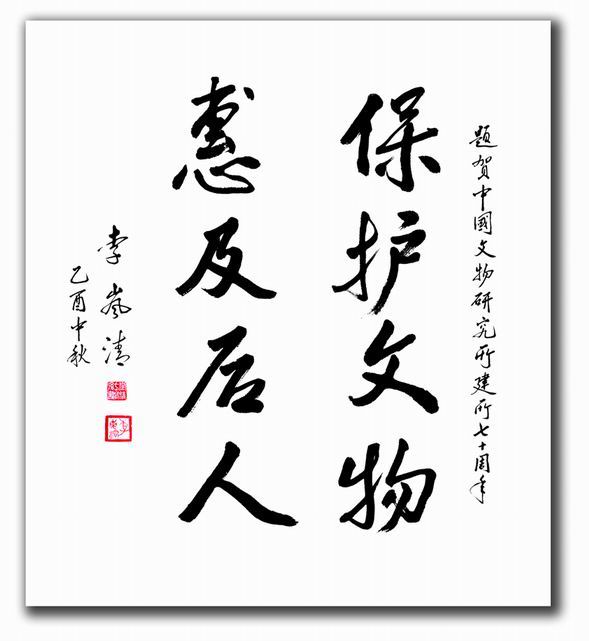 题贺中國文物研究所建所七十周年
保护文物
惠及后人
李岚清
乙酉中秋